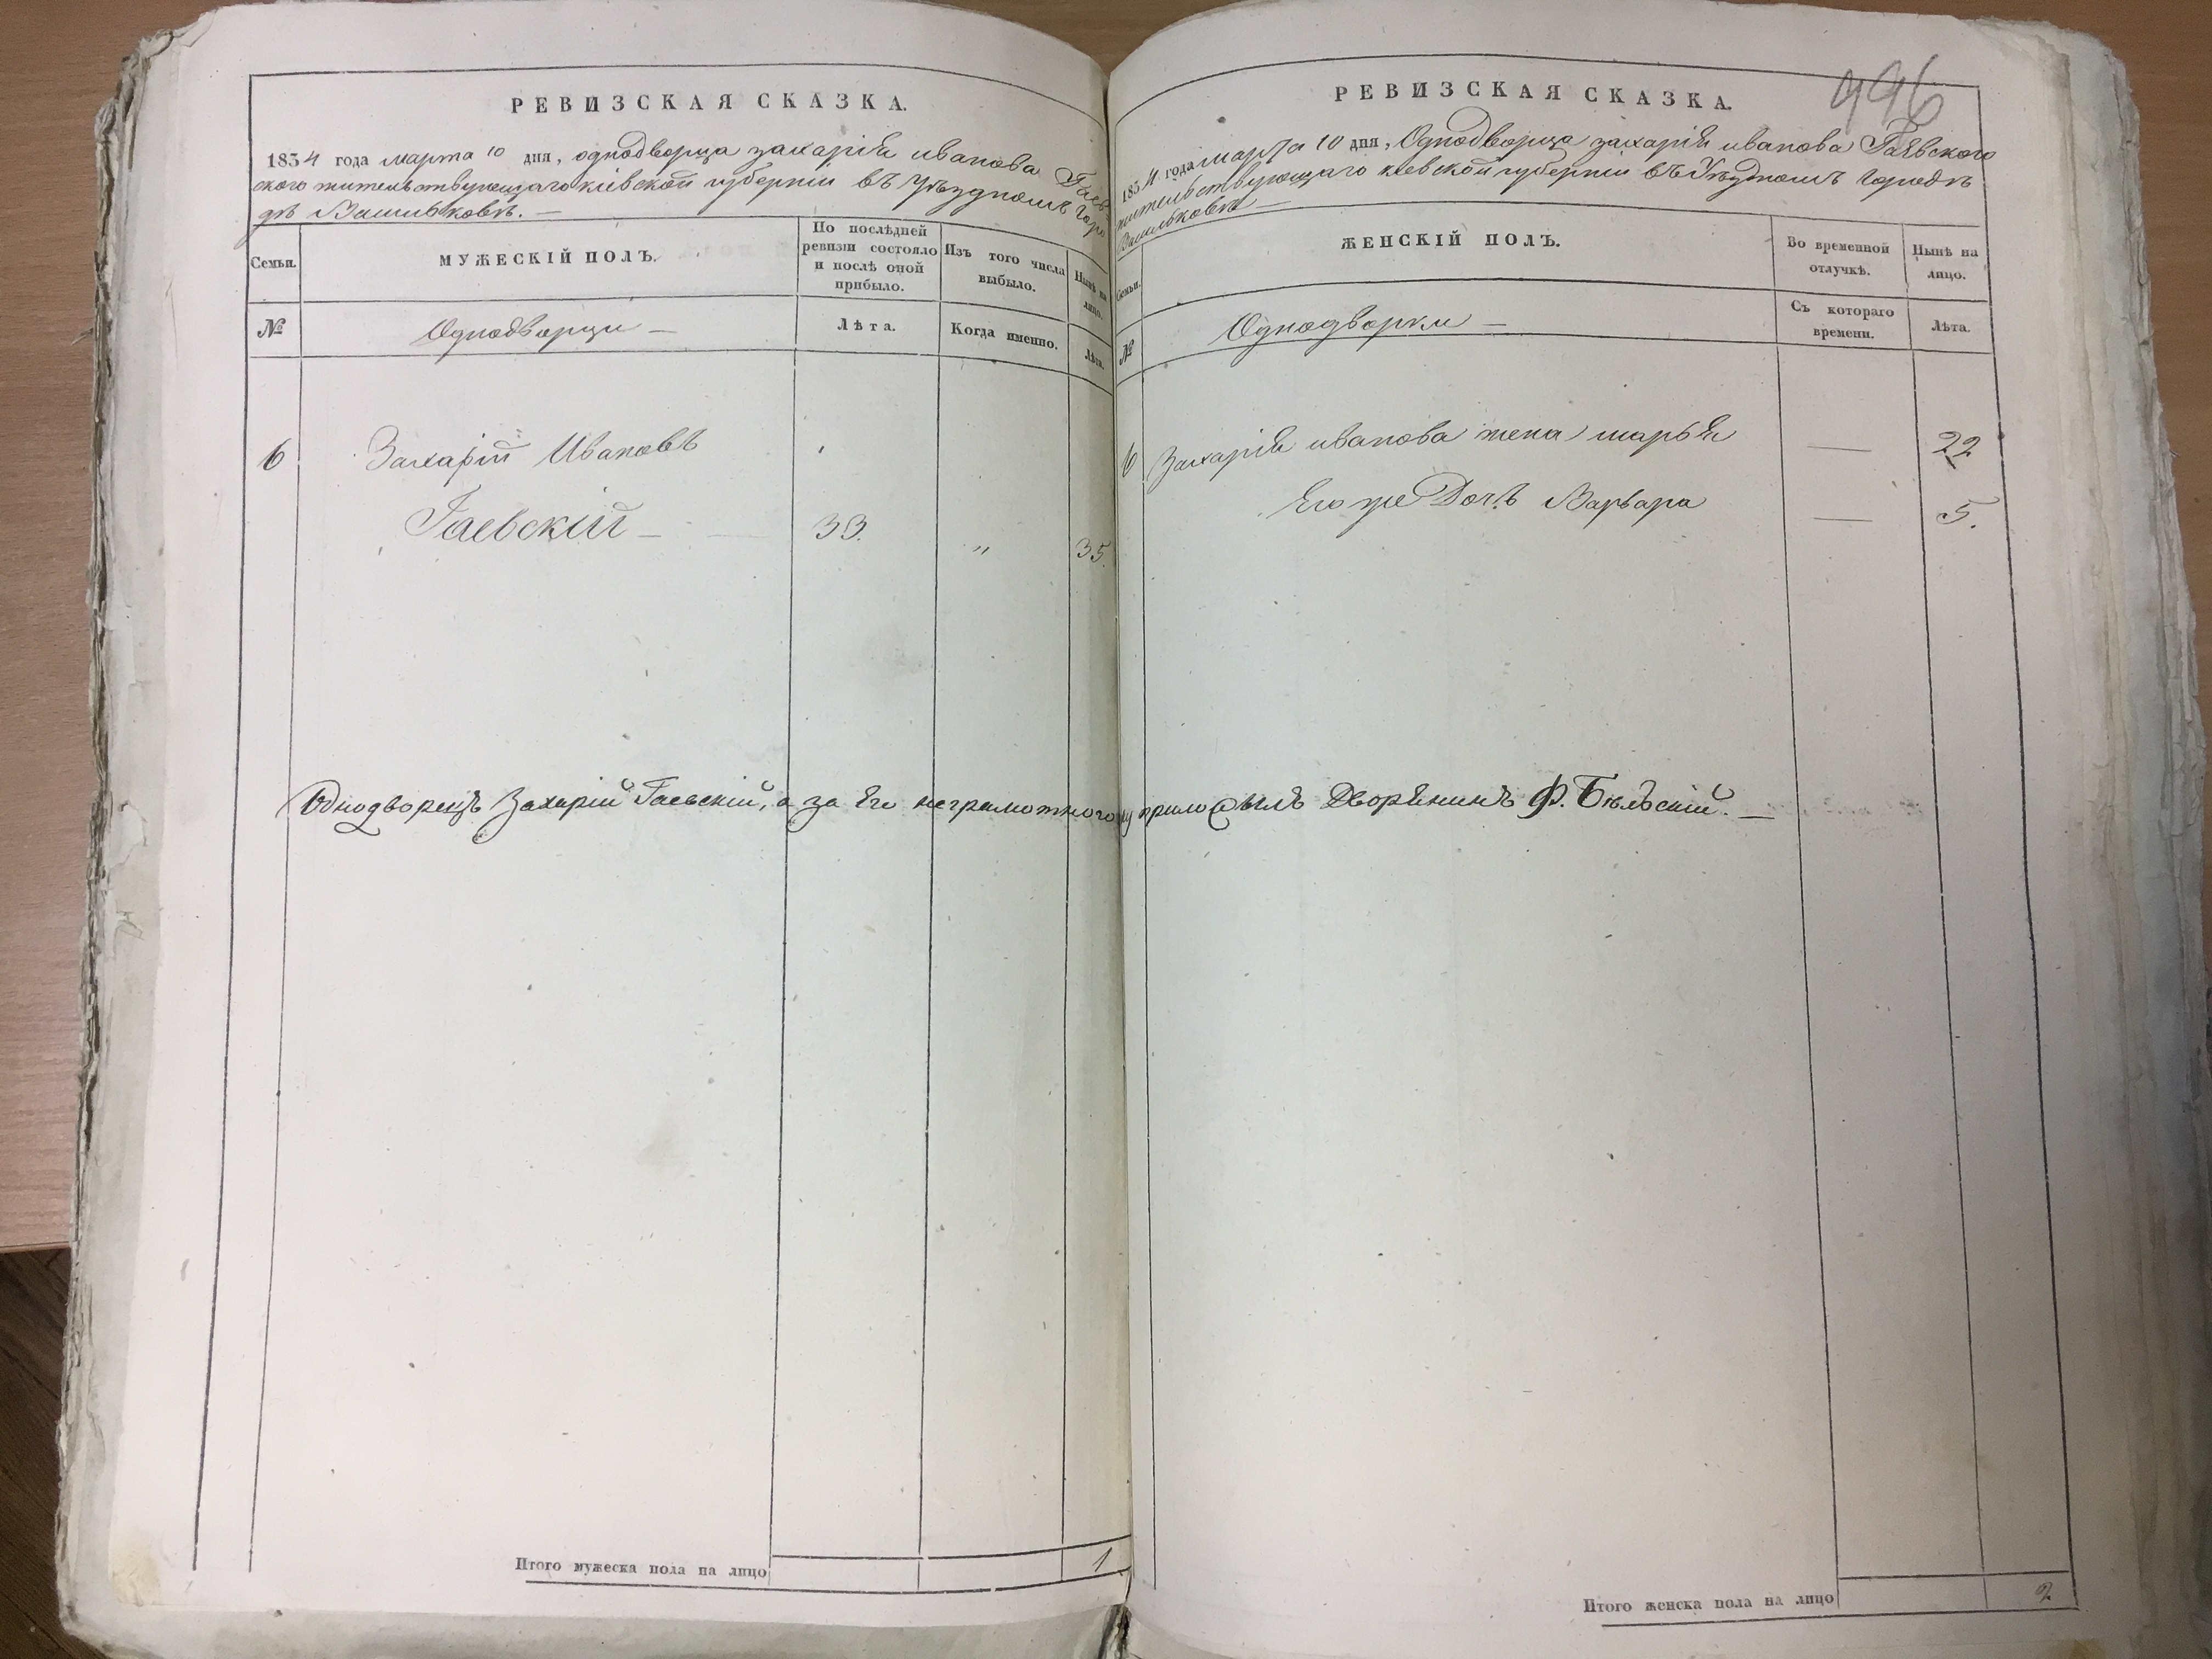 РЕВИЗСКАЯ СКАЗКА.
1854 года марта 10 дня, однодворца захарія иванова Гаев-
ского жительствующаго кіевской губерніи въ уѣздномъ горо
дѣ Васильковѣ. —
Семьи.
МУЖЕСКІЙ ПОЛЪ.
По послѣдней ревизіи состояло и послѣ оной прибыло.
Изъ того числа выбыло.
Нынѣ на лицо.
№
Однодворци —
Лѣта.
Когда именно.
Лѣта.
6
Захарій Ивановъ
Гаевскій — 33. " 35.
Однодворецъ Захарій Гаевскій, а за Его неграмотного
Итого мужеска пола на лицо 1
996
РЕВИЗСКАЯ СКАЗКА.
1854 года марта 10 дня, Однодворца захарія иванова Гаевского
жительствующаго кіевской губерніи въ Уѣздномъ городѣ
Васильковѣ —
Семьи.
ЖЕНСКІЙ ПОЛЪ.
Во временной отлучкѣ.
Нынѣ на лицо.
№
Однодворки —
Съ котораго времени.
Лѣта.
6 Захарія иванова жена марья — 22
Его же Дочь Варвара — 5.
Дворянинъ Ф. Бѣльскій. —
Итого женска пола на лицо 2